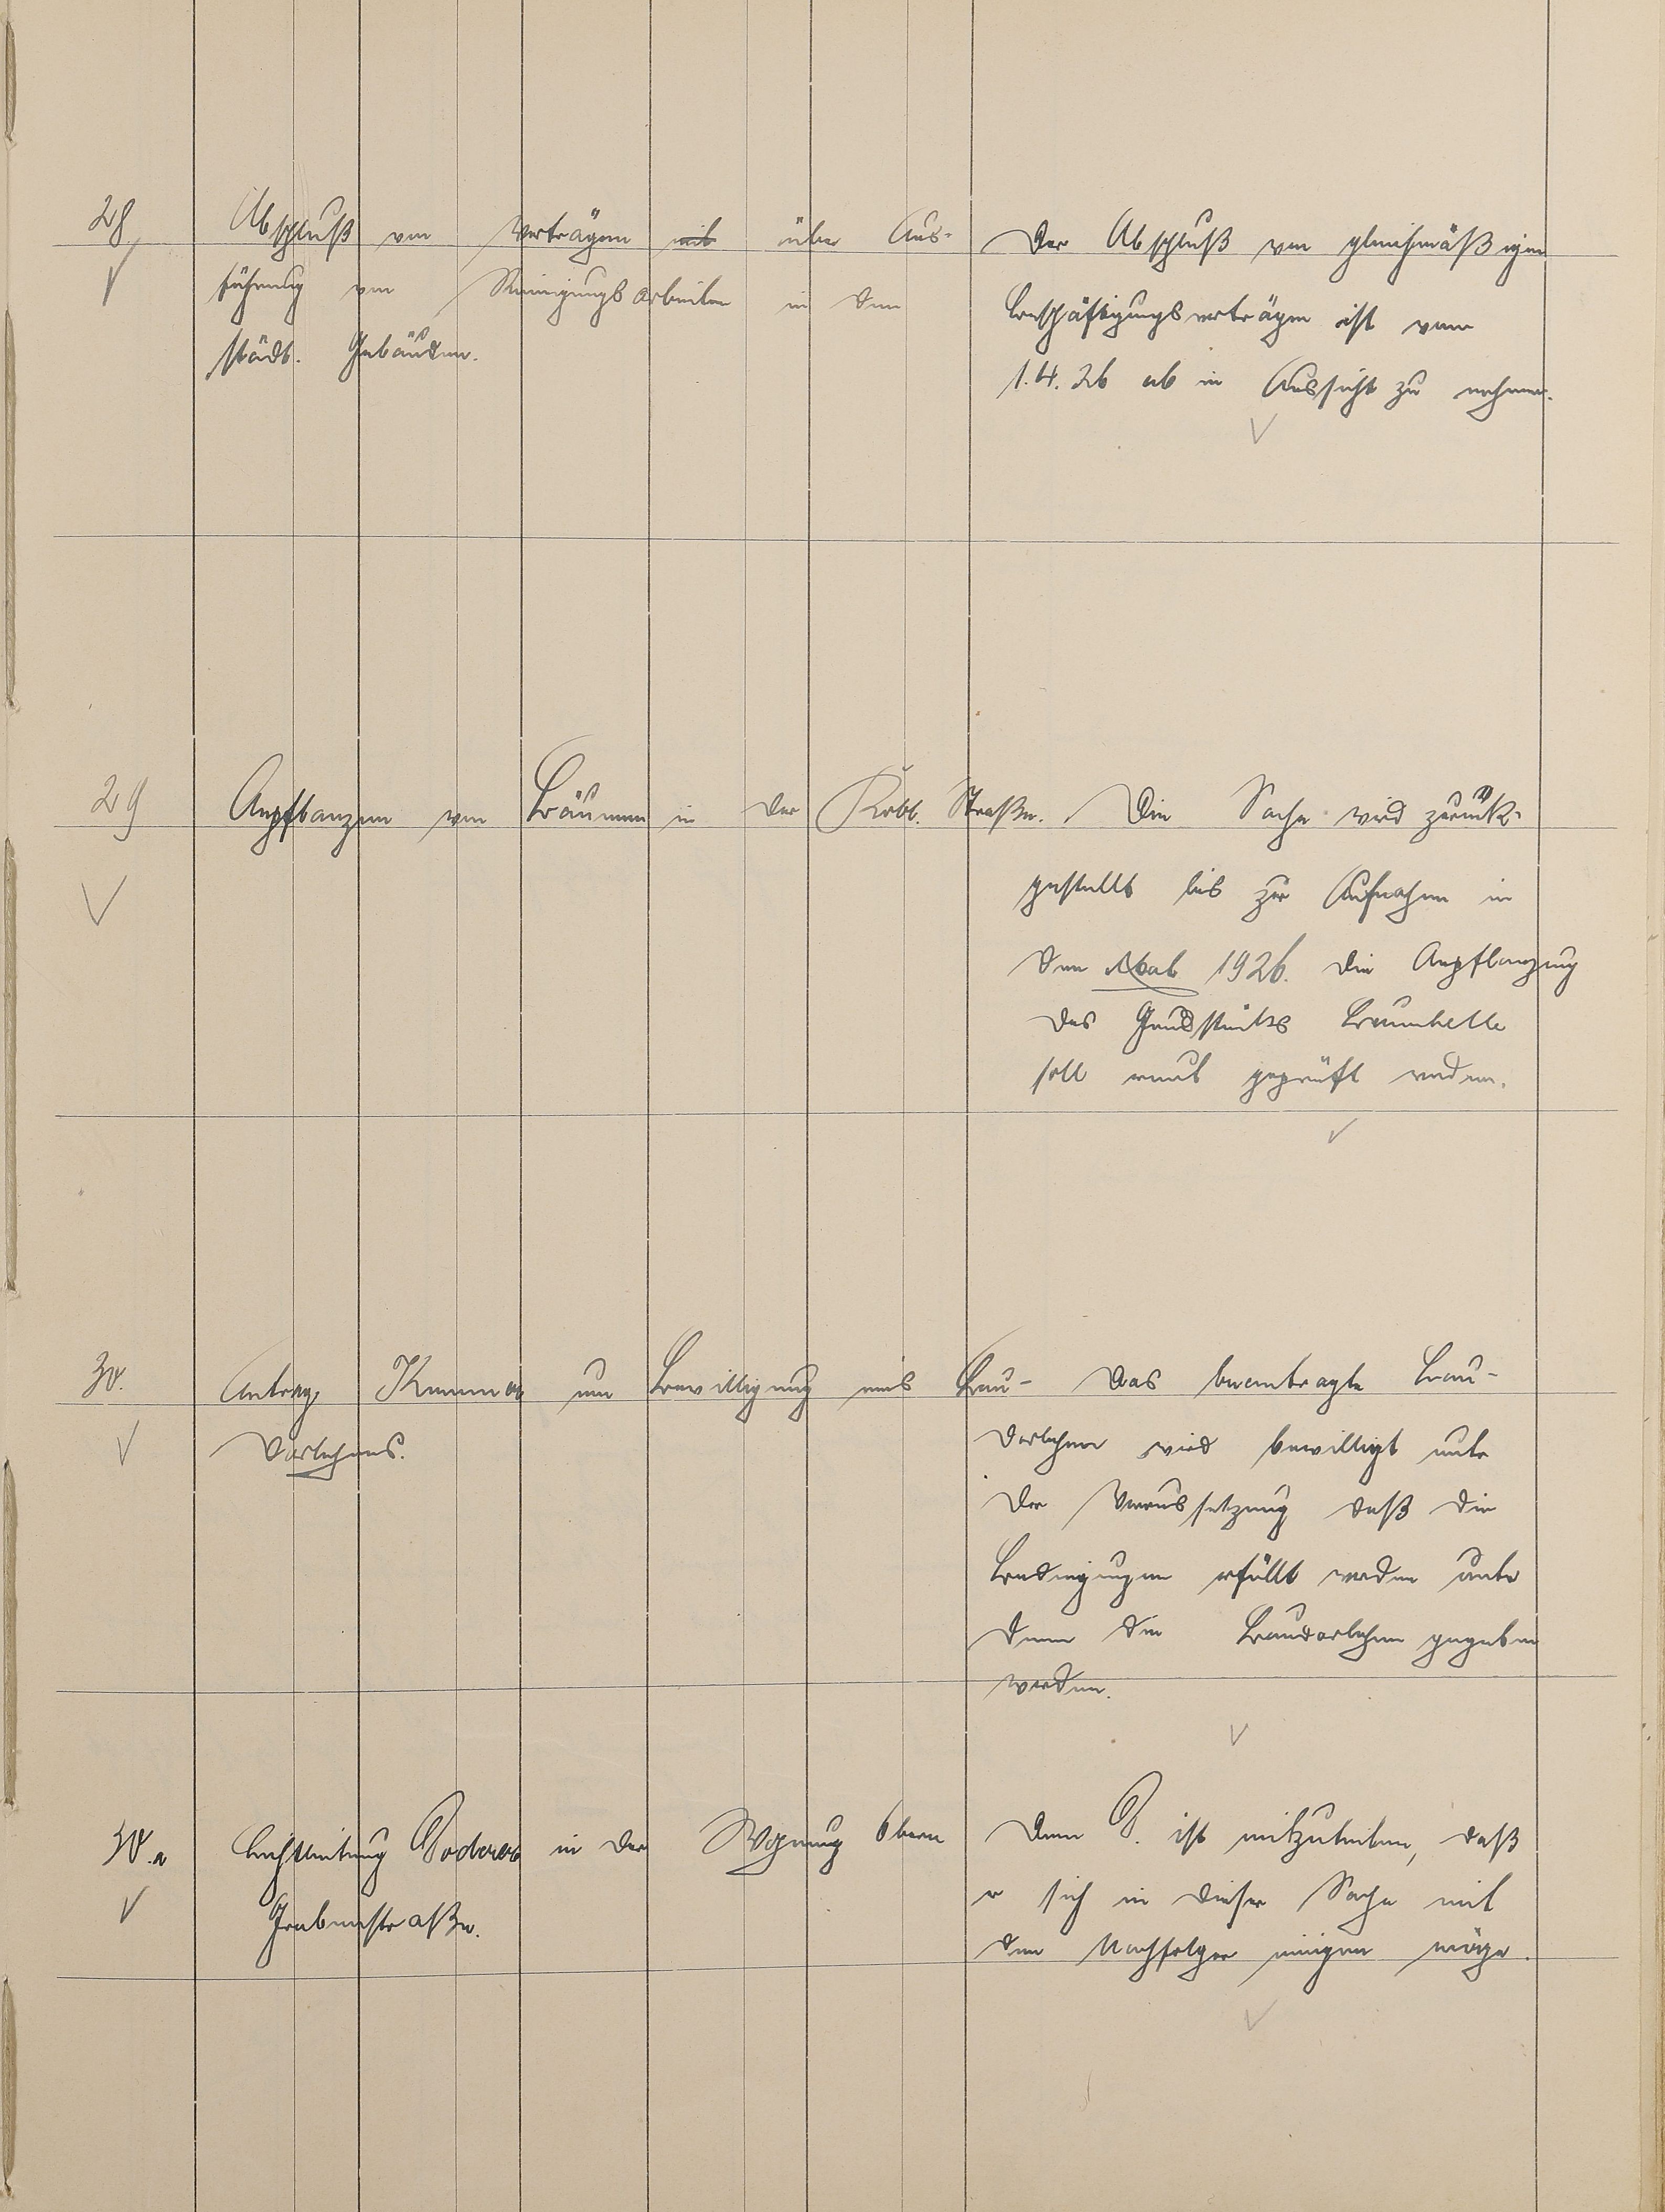 28
Abschluß von Verträgen mit über Aus-
führung von Reinigungsarbeiten in den
städt. Gebäuden.
Der Abschluß von gleichmäßigen
Beschäftigungsverträgen ist vom
1.4.26 ab in Aussicht zu nehmen.
29
Anpflanzen von Bäumen in der Kobl. Straße.
Die Sache wird zurück-
gestellt bis zur Aufnahme in
den Etat 1926. Die Anpflanzung
des Grundstücks Braunhelle
soll erneut geprüft werden.
30.
Antrag um Bewilligung eines Bau-
darlehens.
Das beantragte Bau-
darlehen wird bewilligt unter
der Voraussetzung daß die
Bedingungen erfüllt werden unter
denen die Baudarlehen gegeben
werden.
30.a
Lichtleitung in der Wohnung Obere
Grabenstraße.
Dem P. ist mitzuteilen, daß
er sich in dieser Sache mit
dem Nachfolger einigen möge.